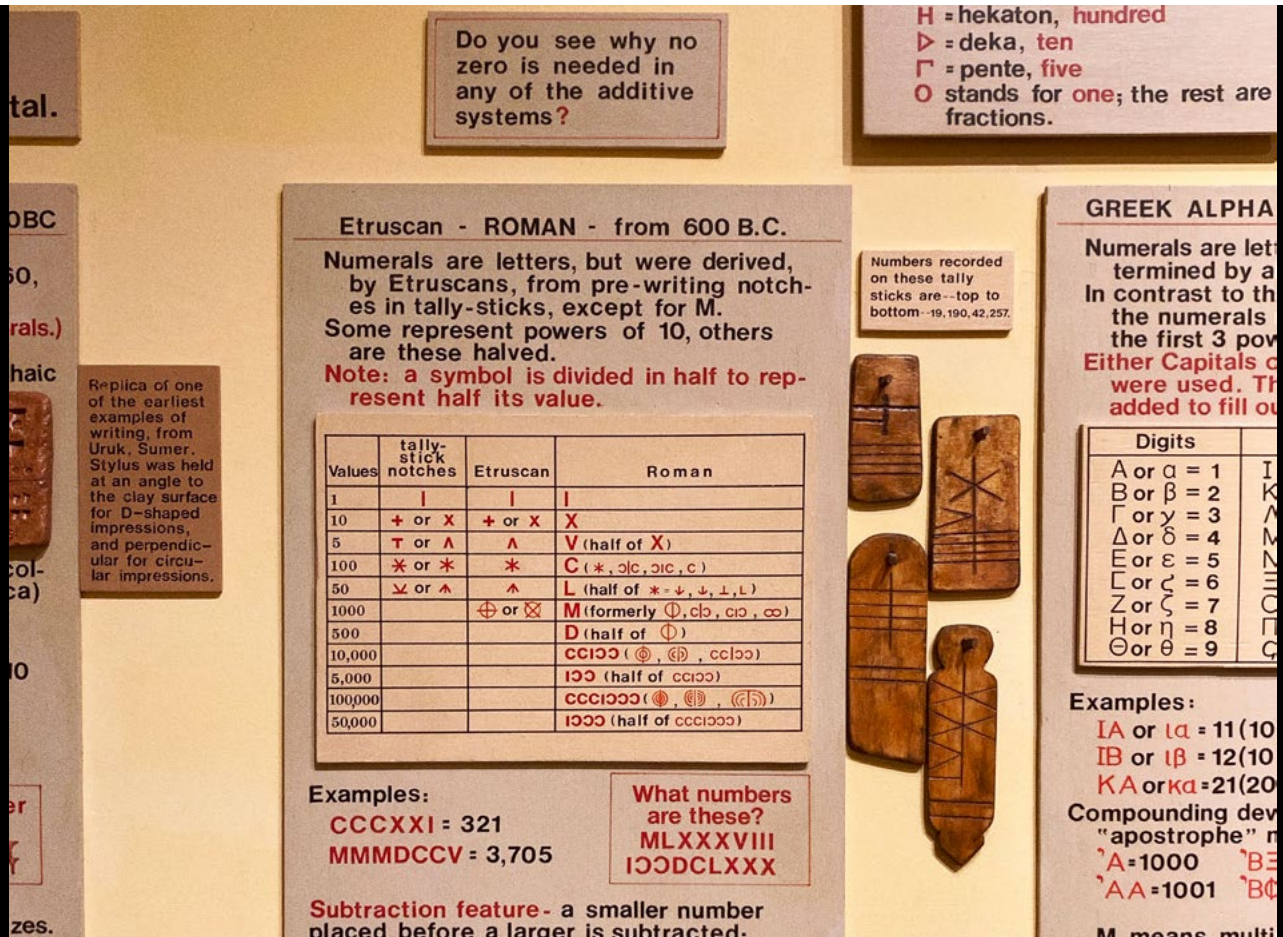 tal.
Do you see why no
zero is needed in
any of the additive
systems?
H = hekaton, hundred
▷ = deka, ten
Γ = pente, five
O stands for one; the rest are
fractions.
0BC
60,
rals.)
haic
Replica of one
of the earliest
examples of
writing, from
Uruk, Sumer.
Stylus was held
at an angle to
the clay surface
for D-shaped
impressions,
and perpendic-
ular for circu-
lar impressions.
col-
ca)
10
er
zes.
Etruscan - ROMAN - from 600 B.C.
Numerals are letters, but were derived,
by Etruscans, from pre-writing notch-
es in tally-sticks, except for M.
Some represent powers of 10, others
are these halved.
Note: a symbol is divided in half to rep-
resent half its value.
Values tally-stick notches Etruscan Roman
1 I I I
10 + or X + or X X
5 T or Λ Λ V (half of X)
100 ⚹ or * * C (*, Ɔ|C, ƆIC, C)
50 or ↑ ↑ L (half of * = ↓, ↓, ⊥, L)
1000 ⊕ or ⊗ M (formerly Ⓘ, C|Ɔ, CIƆ, ∞)
500 D (half of Ⓘ)
10,000 CCIƆƆ ( , , CC|ƆƆ)
5,000 IƆƆ (half of CCIƆƆ)
100,000 CCCIƆƆƆ ( , , )
50,000 IƆƆƆ (half of CCCIƆƆƆ)
Examples:
CCCXXI = 321
MMMDCCV = 3,705
What numbers
are these?
MLXXXVIII
IƆƆDCLXXX
Subtraction feature - a smaller number
placed before a larger is subtracted:
Numbers recorded
on these tally
sticks are--top to
bottom--19,190,42,257.
GREEK ALPHA
Numerals are let
termined by a
In contrast to th
the numerals
the first 3 pow
Either Capitals o
were used. Th
added to fill ou
Digits
A or α = 1
B or β = 2
Γ or γ = 3
Δ or δ = 4
E or ε = 5
Ϛ or ϛ = 6
Z or ζ = 7
H or η = 8
Θ or θ = 9
Examples:
IA or ια = 11(10
IB or ιβ = 12(10
KA or κα = 21(20
Compounding dev
"apostrophe" n
'A=1000 'BΞ
'AA=1001 'BΦ
M means multi